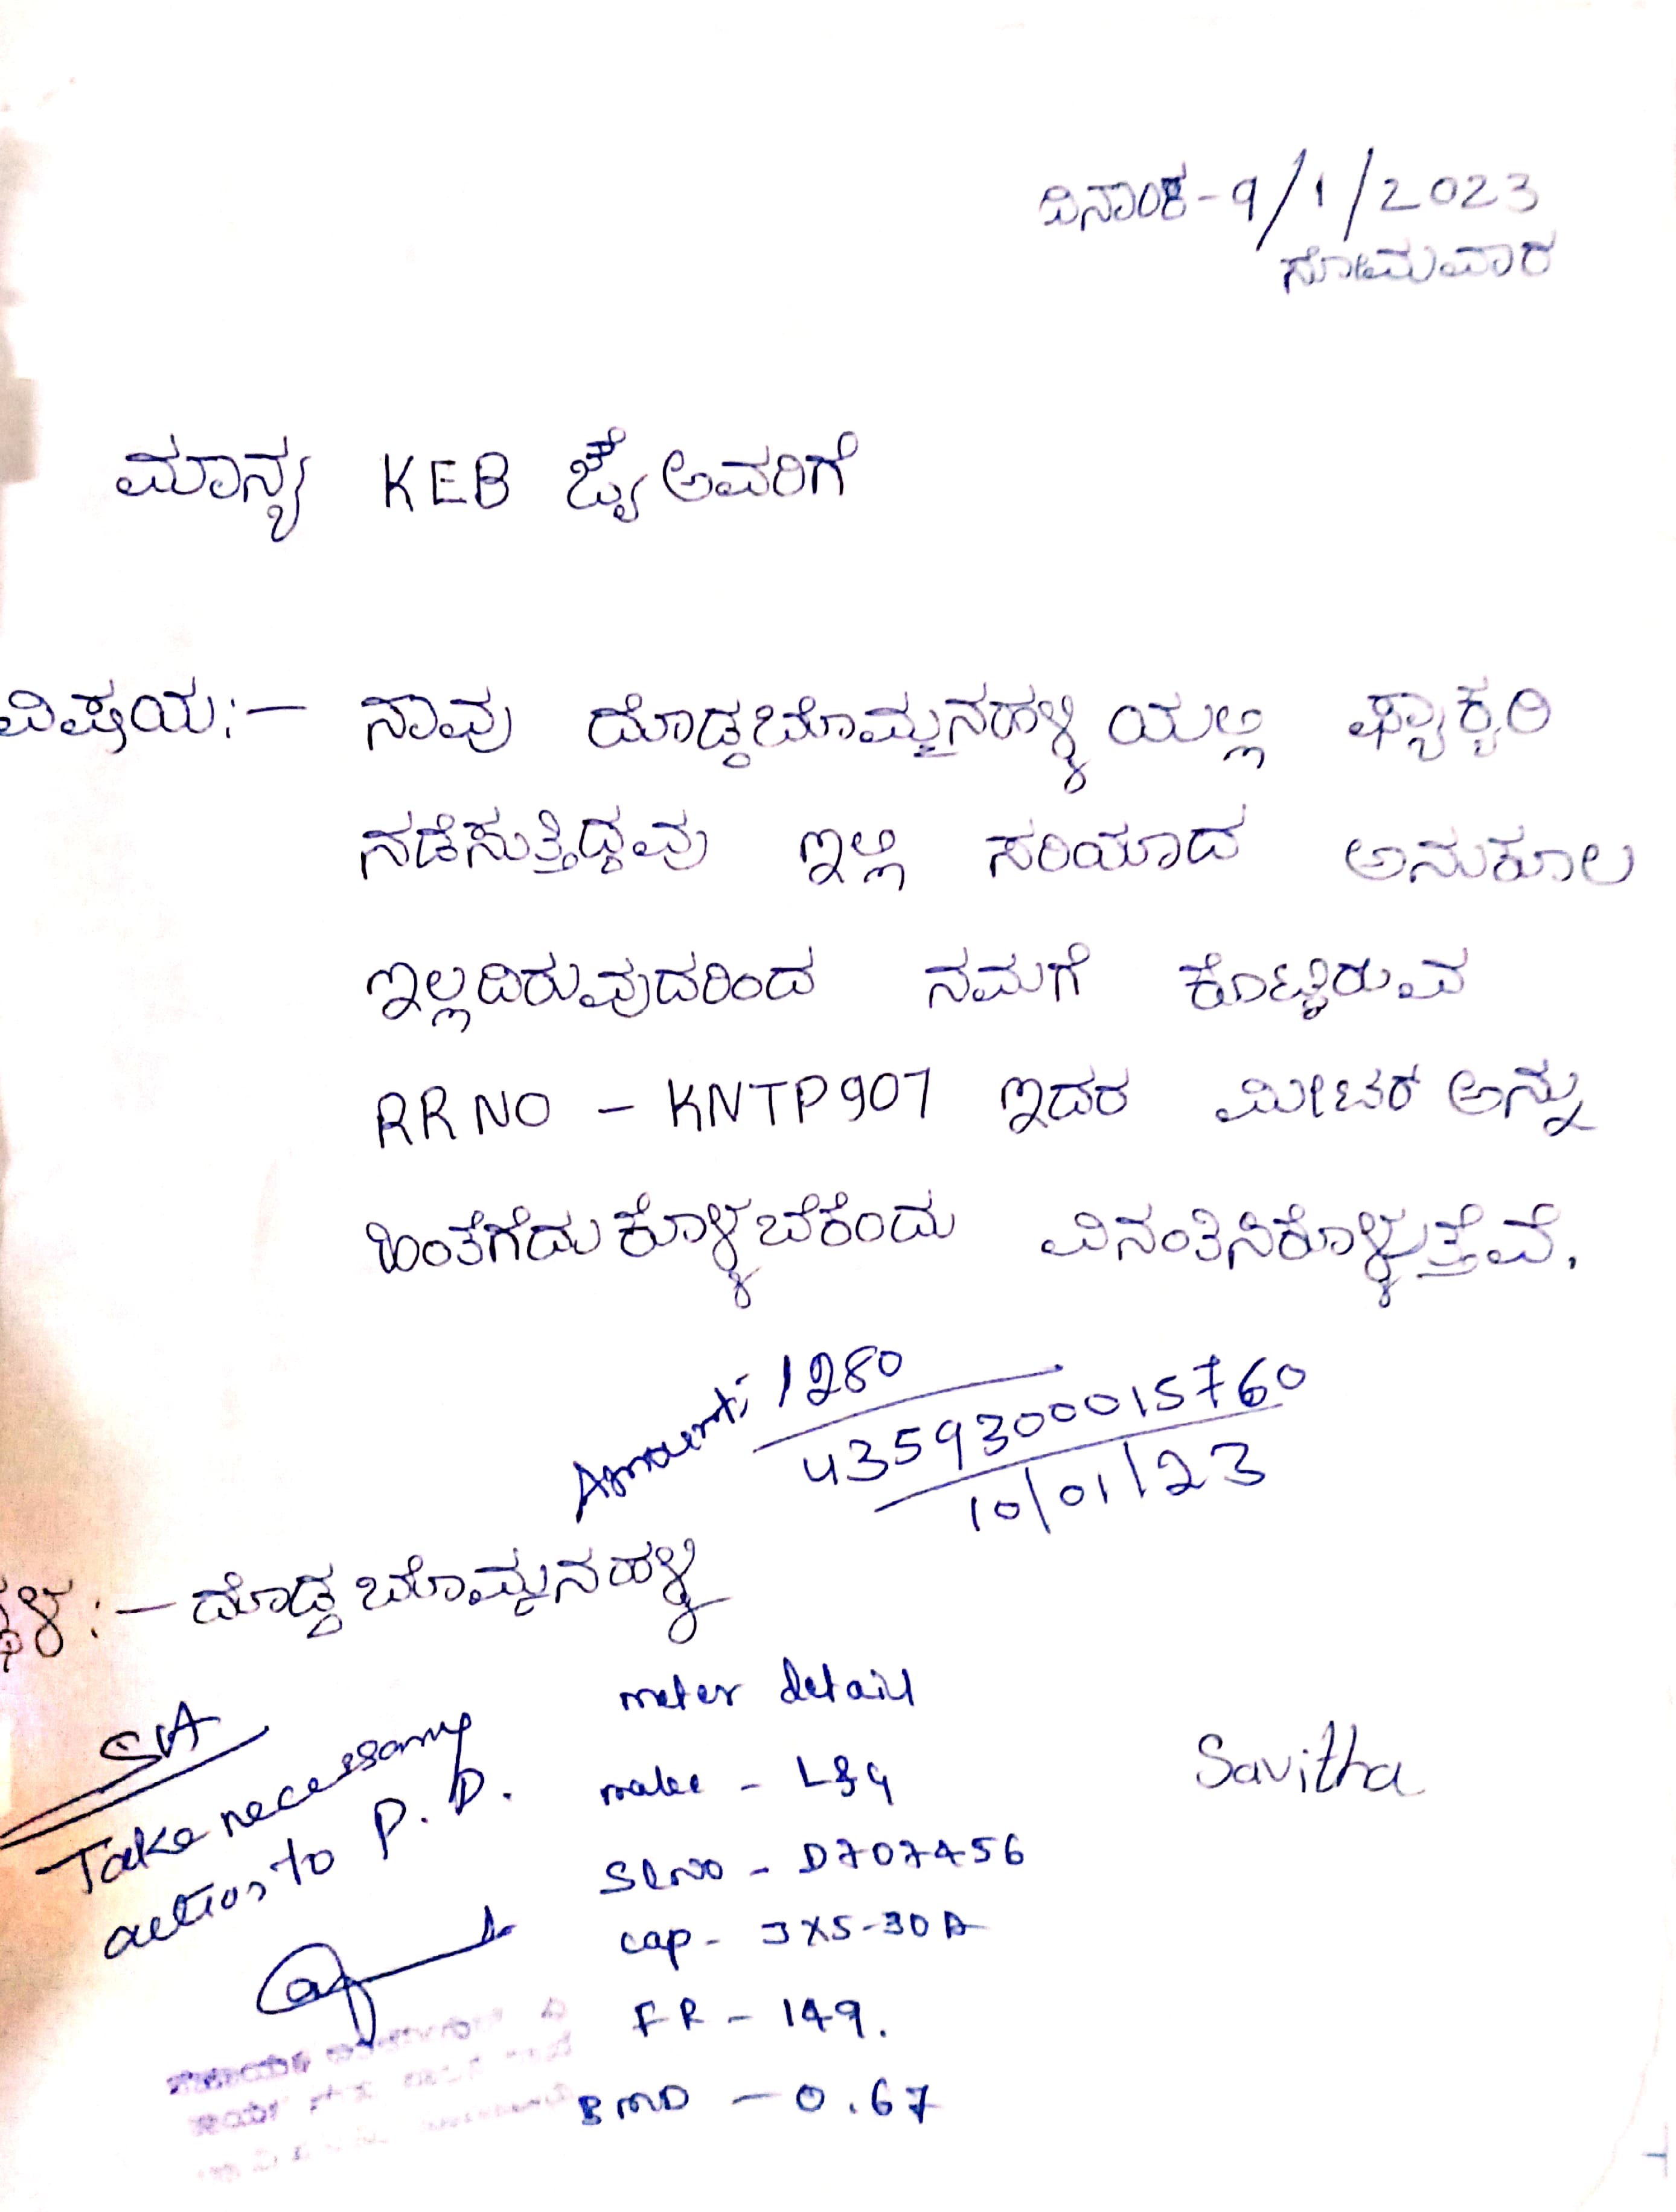 ದಿನಾಂಕ-9/1/2023
ಸೋಮವಾರ
ಮಾನ್ಯ KEB ಅವರಿಗೆ
ವಿಷಯ:- ನಾವು ದೊಡ್ಡಬೊಮ್ಮನಹಳ್ಳಿ ಯಲ್ಲಿ ಫ್ಯಾಕ್ಟರಿ
ನಡೆಸುತ್ತಿದ್ದವು ಇಲ್ಲಿ ಸರಿಯಾದ ಅನುಕೂಲ
ಇಲ್ಲದಿರುವುದರಿಂದ ನಮಗೆ ಕೊಟ್ಟಿರುವ
RR NO - KNTP907 ಇದರ ಮೀಟರ್ ಅನ್ನು
ಹಿಂತೆಗೆದುಕೊಳ್ಳಬೆಕೆಂದು ವಿನಂತಿಸಿಕೊಳ್ಳುತ್ತೆವೆ.
Amount: 1280
43593000015760
10/01/23
ಸ್ಥಳ:- ದೊಡ್ಡಬೊಮ್ಮನಹಳ್ಳಿ
SVA
Take necessary
action to P.D.
meter detail
make - L&G
Slno - D707456
cap - 3X5-30A
FR - 149.
BMD - 0.67
Savitha